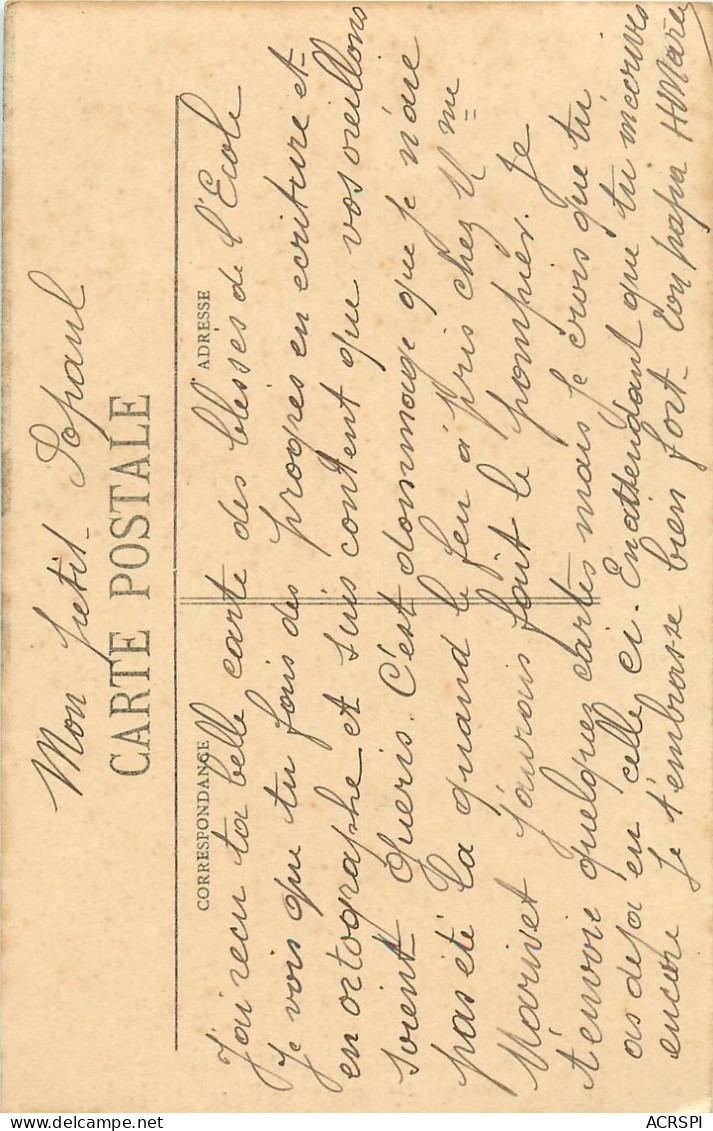 Mon petit Popaul
CARTE POSTALE
CORRESPONDANCE
ADRESSE
J'ai recu ta belle carte des blésses de l'Ecole
Je vois que tu fais des progres en ecriture et
en ortographe et suis content que vos oreillons
soient Queris. C'est dommage que je n'aie
pas été la quand le feu à pris chez Mme
Marivet j'aurais fait le pompier. Je
t'envoie quelquez cartes mais je crois que tu
as deja eu celle ci. En attendant que tu m'ecrives
encore Je t'embrasse bien fort. Ton papa HMarie
ACRSPI